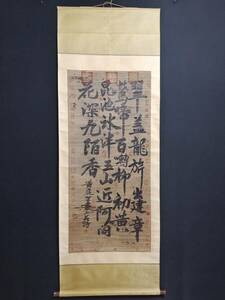 翠蓋龍旂出建章
鶯啼百囀柳初黃
昆池冰泮三山近阿閣
花深九陌香